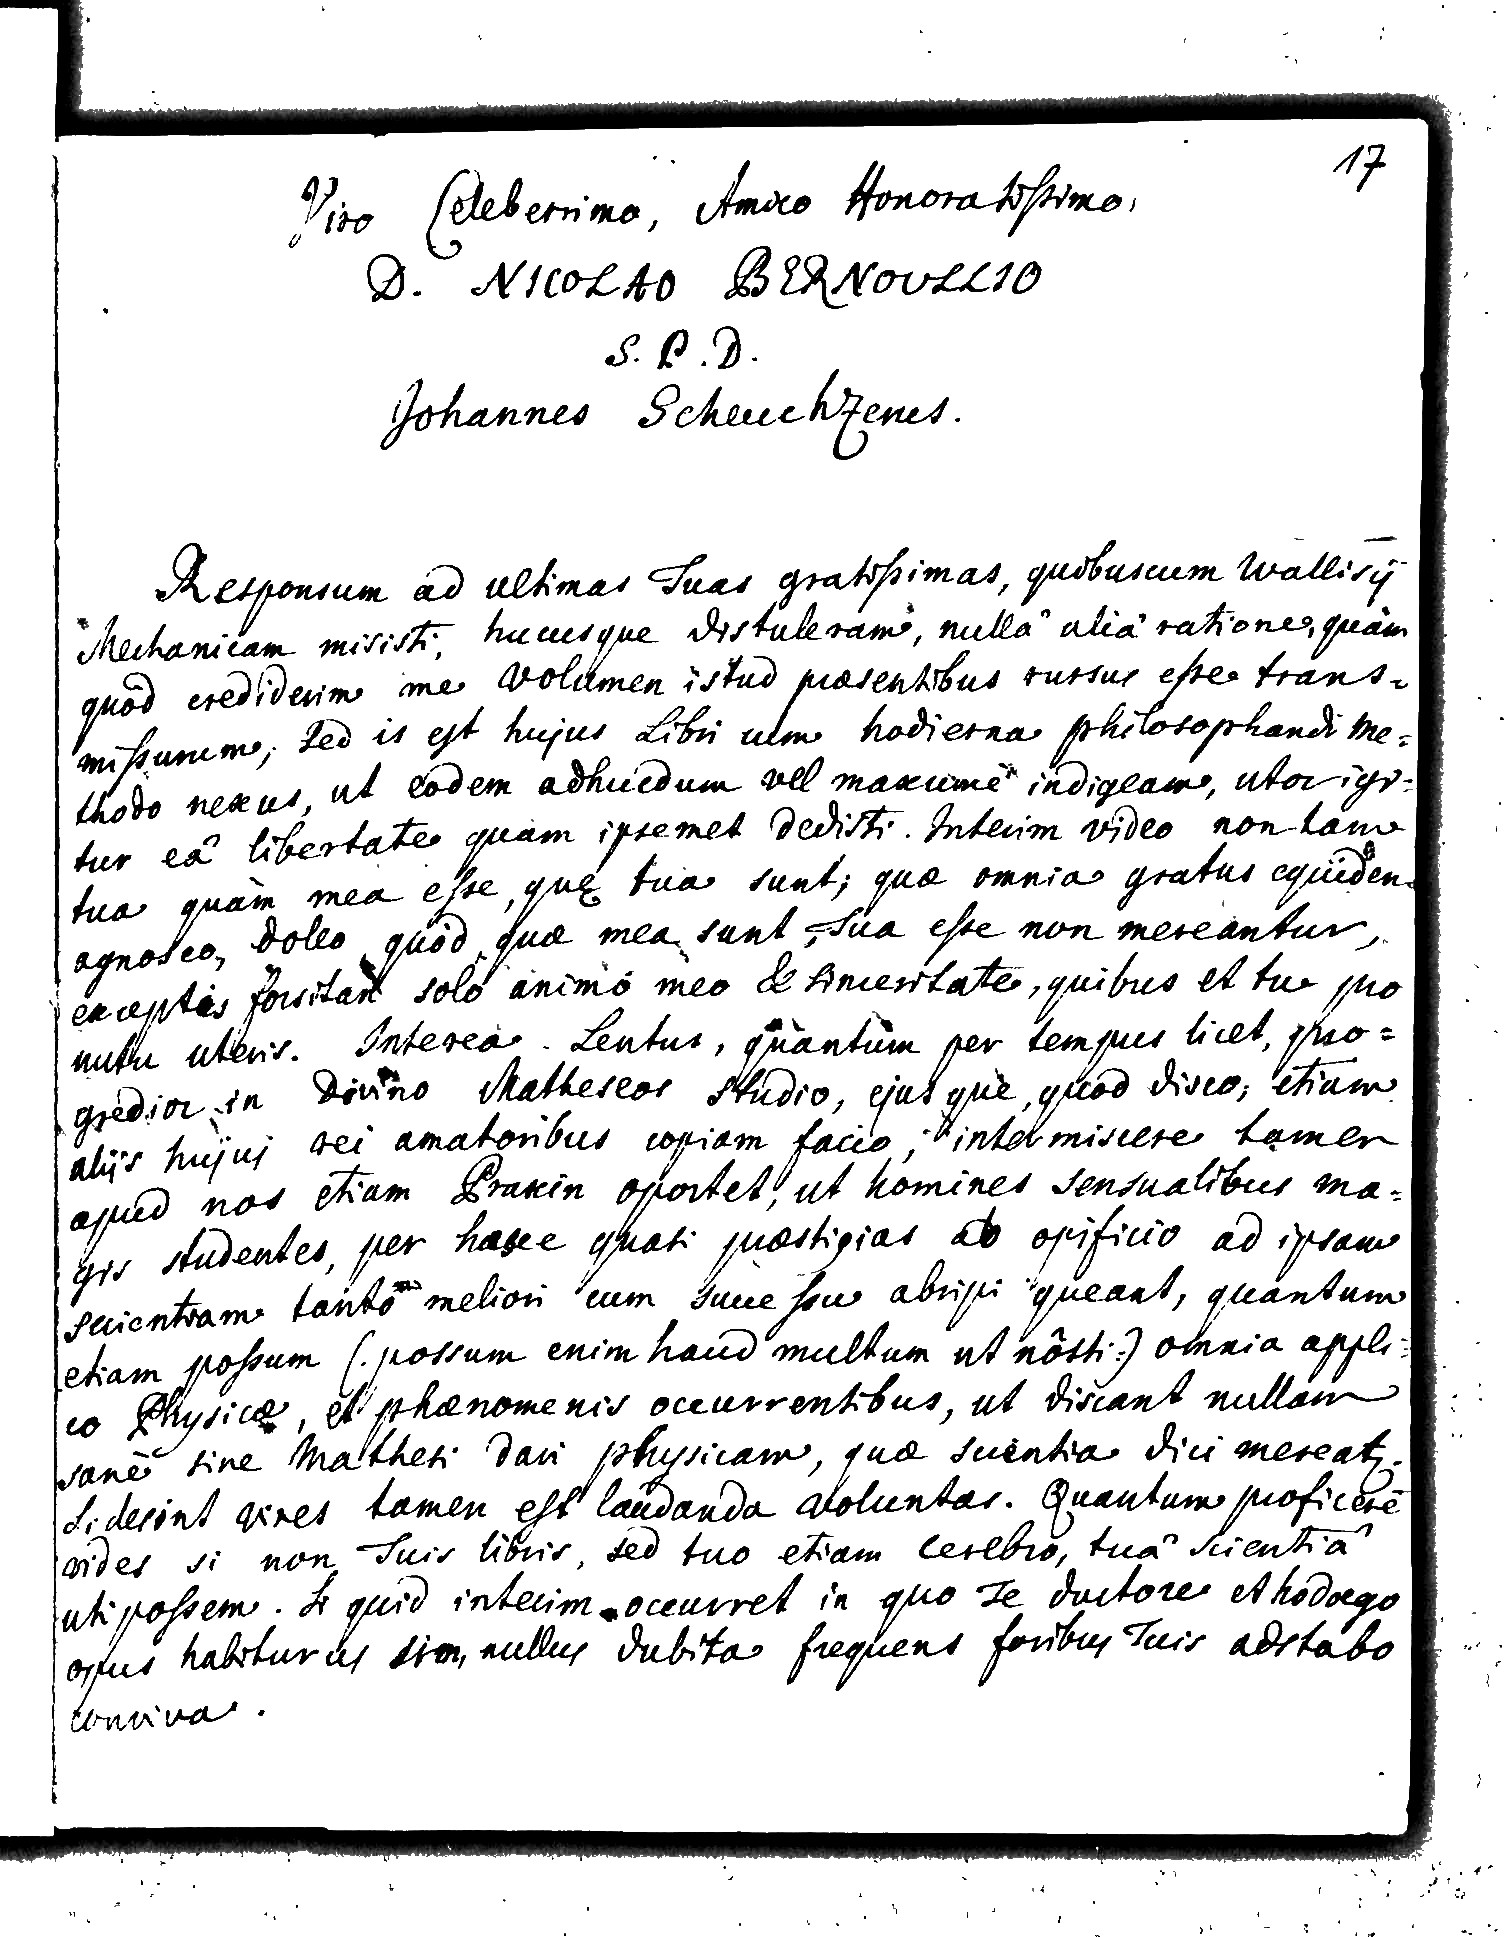 17
Viro Celeberrimo, Amico Honoratißimo,
D. NICOLAO BERNOULLIO
S. P. D.
Johannes Scheuchzerus.
Responsum ad ultimas Tuas gratißimas, quibuscum Wallisij
Mechanicam misisti, hucusque distuleram, nullâ aliâ ratione, quàm
quòd crediderim me volumen istud præsentibus rursus eße trans=
mißurum; sed is est hujus Libri cum hodierna philosophandi me=
thodo nexus, ut eodem adhucdum vel maxumè indigeam, utor igi=
tur eâ libertate quam ipsemet dedisti. Interim video non tam
tua quàm mea eße, quę tua sunt; quæ omnia gratus equidem
agnosco, doleo quòd quæ mea sunt, Tua eße non mereantur,
exceptis forsitan solo animo meo & sinceritate, quibus et tu pro
nutu uteris. Interea. Lentus, quantùm per tempus licet, pro=
gredior in Divino Matheseos studio, ejusque, quod disco, etiam
alijs hujus rei amatoribus copiam facio; intermiscere tamen
apud nos etiam Praxin oportet, ut homines sensualibus ma=
gis studentes, per hasce quasi præstigias ab opificio ad ipsam
scientiam tantò meliori cum succeßu abripi queant, quantum
etiam poßum (: possum enim haud multum ut nôsti :) omnia appli=
co Physicæ, et phænomenis occurrentibus, ut discant nullam
sanè sine Mathesi dari physicam, quæ scientia dici mereatꝫ.
Si desint vires tamen est laudanda voluntas. Quantum proficere
vides si non Tuis libris, sed tuo etiam cerebro, tuâ scientiâ
uti poßem. Si quid interim occurret in quo Te ductore et hodœgo
opus habiturus sim, nullus dubita frequens foribus Tuis adstabo
conviva.